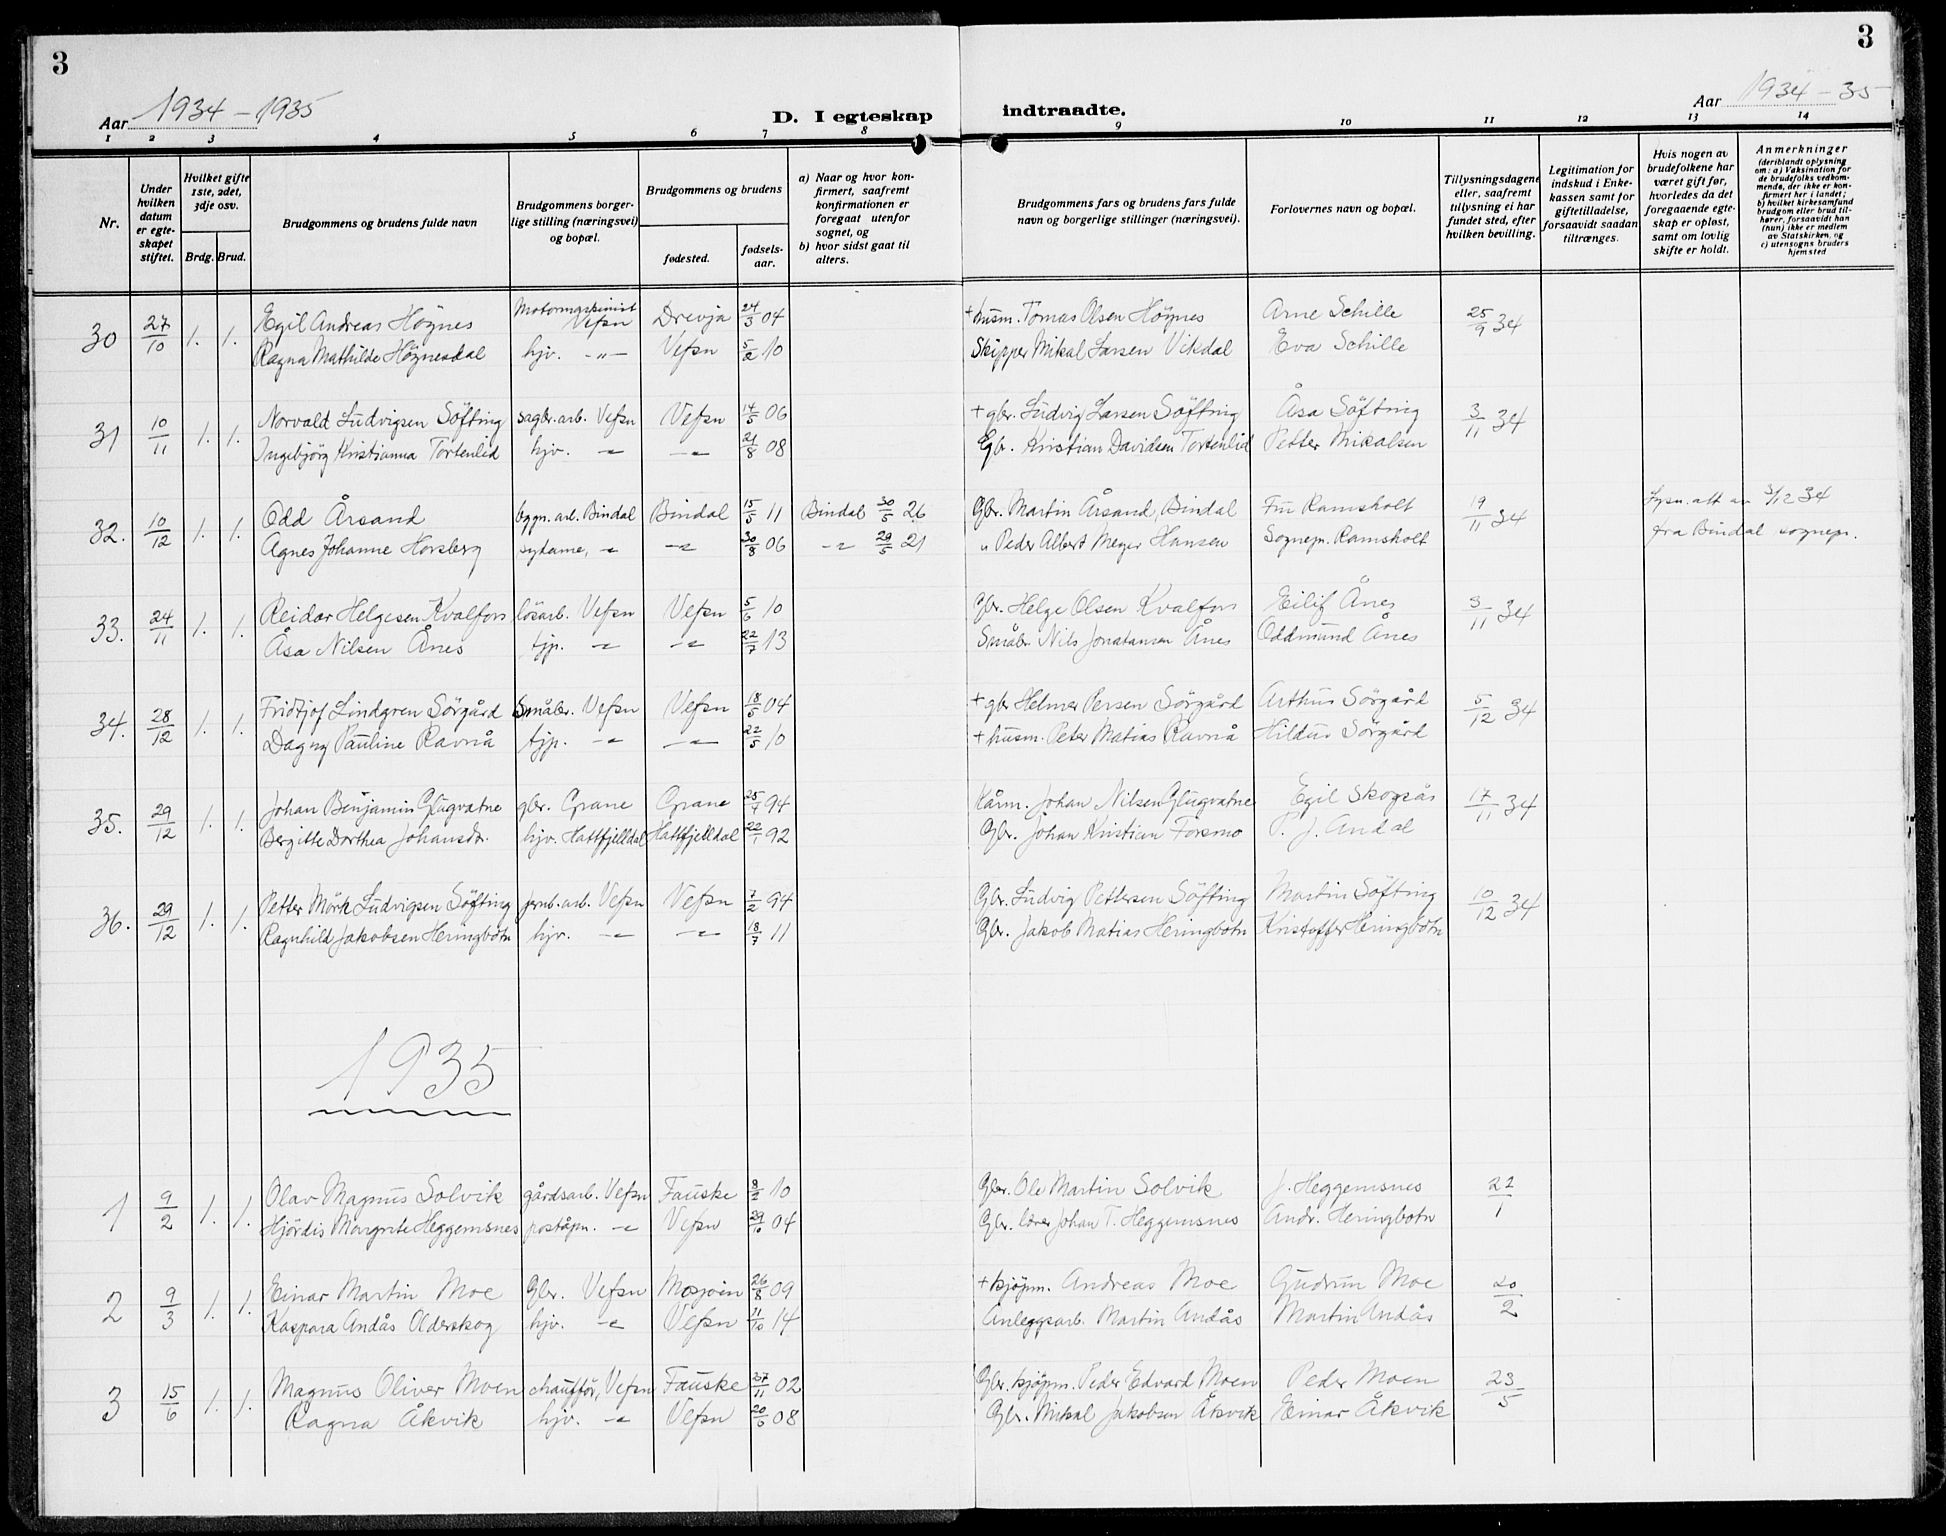 3
3
Aar 1934 – 1935
D. I egteskap indtraadte.
Aar 1934 – 35
1 2 3 4 5 6 7 8 9 10 11 12 13 14
Nr.
Under hvilken datum er egteskapet stiftet.
Hvilket gifte 1ste, 2det, 3dje osv.
Brdg. Brud.
Brudgommens og brudens fulde navn
Brudgommens borgerlige stilling (næringsvei) og bopæl.
Brudgommens og brudens
fødested.
fødselsaar.
a) Naar og hvor konfirmert, saafremt konfirmationen er foregaat utenfor sognet, og
b) hvor sidst gaat til alters.
Brudgommens fars og brudens fars fulde navn og borgerlige stillinger (næringsvei).
Forlovernes navn og bopæl.
Tillysningsdagene eller, saafremt tillysning ei har fundet sted, efter hvilken bevilling.
Legitimation for indskud i Enkekassen samt for giftetilladelse, forsaavidt saadan tiltrænges.
Hvis nogen av brudefolkene har været gift før, hvorledes da det foregaaende egteskap er opløst, samt om lovlig skifte er holdt.
Anmerkninger
(deriblandt oplysning om: a) Vaksination for de brudefolks vedkommende, der ikke er konfirmert her i landet; b) hvilket kirkesamfund brudgom eller brud tilhører, forsaavidt han (hun) ikke er medlem av Statskirken, og c) utensogns bruders hjemsted
30 27/10 1. 1. Egil Andreas Höynes Motormaskinist Vefsn Drevja 24/3 04 + husm. Tomas Olsen Höynes Arne Schille 25/9 34
Ragna Mathilde Höynesdal hjv. -"- Vefsn 5/2 10 Skipper Mikal Larsen Vikdal Eva Schille
31 10/11 1. 1. Norvald Ludvigsen Söfting sagbr. arb. Vefsn Vefsn 14/5 06 + gbr. Ludvig Larsen Söfting Åsa Söfting 3/11 34
Ingebjörg Kristianna Tortenlid hjv. -"- -"- 21/8 08 Gbr. Kristian Davidsen Tortenlid Petter Mikalsen
32. 10/12 1. 1. Odd Årsand bygn. arb. Bindal Bindal 15/5 11 Bindal 30/5 26 Gbr. Martin Årsand, Bindal Fru Ramsholt 19/11 34 Lysn. att av 3/12 34
Agnes Johanne Horsberg sydame, -"- -"- 30/8 06 -"- 29/5 21 " Peder Albert Meyer Hansen Sognepr. Ramsholt fra Bindal sognepr.
33. 24/11 1. 1. Reidar Helgesen Kvalfors lösarb. Vefsn Vefsn 5/6 10 Gbr. Helge Olsen Kvalfors Eilif Ånes 3/11 34
Åsa Nilsen Ånes tjp. -"- -"- 22/7 13 Småbr. Nils Jonatansen Ånes Oddmund Ånes
34. 28/12 1. 1. Fridtjof Lindgren Sörgård Småbr. Vefsn Vefsn 18/5 04 + gbr Helmer Persen Sörgård Arthur Sörgård 5/12 34
Dagny Pauline Ravnå tjp. -"- -"- 22/5 10 + husm. Peter Matias Ravnå Hildur Sörgård
35. 29/12 1. 1. Johan Benjamin Glugvatne gbr. Grane Grane 25/7 94 Kårm. Johan Nilsen Glugvatne Egil Skogsås 17/11 34
Bergitte Dorthea Johansdr. hjv. Hattfjelldal Hattfjelldal 22/1 92 Gbr. Johan Kristian Forsmo P. J. Andal
36. 29/12 1. 1. Petter Mörk Ludvigsen Söfting jernb. arb. Vefsn Vefsn 7/2 94 Gbr. Ludvig Pettersen Söfting Martin Söfting 10/12 34
Ragnhild Jakobsen Heringbotn hjv. -"- -"- 18/7 11 Gbr. Jakob Matias Heringbotn Kristoffer Heringbotn
1935
1 9/2 1. 1. Olav Magnus Solvik gårdsarb. Vefsn Fauske 8/2 10 Gbr. Ole Martin Solvik J. Heggemsnes 22/1
Hjördis Margrete Heggemsnes poståpn. -"- Vefsn 29/10 04 Gbr. lærer Johan T. Heggemsnes Andr. Heringbotn
2 9/3 1. 1. Einar Martin Moe Gbr. Vefsn Mosjøen 26/8 09 + kjøpm. Andreas Moe Gudrun Moe 20/2
Kaspara Andås Olderskog hjv. -"- Vefsn 11/10 14 Anleggsarb. Martin Andås Martin Andås
3 15/6 1. 1. Magnus Oliver Moen chauffør, Vefsn Fauske 27/11 02 Gbr. kjøpm. Peder Edvard Moen Peder Moen 23/5
Ragna Åkvik hjv. -"- Vefsn 20/6 08 Gbr. Mikal Jakobsen Åkvik Einar Åkvik